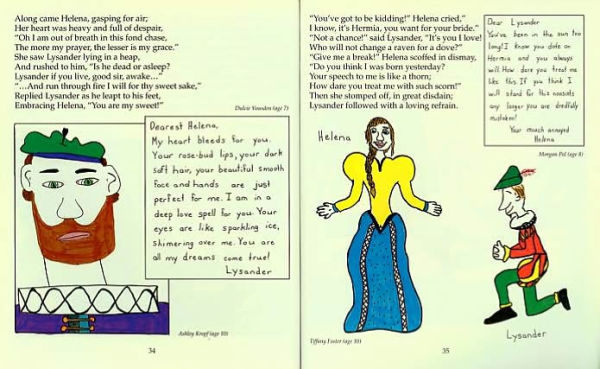 Along came Helena, gasping for air;
Her heart was heavy and full of despair,
"Oh I am out of breath in this fond chase,
The more my prayer, the lesser is my grace."
She saw Lysander lying in a heap,
And rushed to him, "Is he dead or asleep?
Lysander if you live, good sir, awake…"
"…And run through fire I will for thy sweet sake,"
Replied Lysander as he leapt to his feet,
Embracing Helena, "You are my sweet!"
Dulcie Vousden (age 7)
Dearest Helena,
My heart bleeds for you.
Your rose-bud lips, your dark
soft hair, your beautiful smooth
face and hands are just
perfect for me. I am in a
deep love spell for you. Your
eyes are like sparkling ice,
shimering over me. You are
all my dreams come true!
Lysander
Ashley Kropf (age 10)
34
"You've got to be kidding!" Helena cried,
I know, it's Hermia, you want for your bride."
"Not a chance!" said Lysander, "It's you I love!
Who will not change a raven for a dove?"
"Give me a break!" Helena scoffed in dismay,
"Do you think I was born yesterday?
Your speech to me is like a thorn;
How dare you treat me with such scorn!"
Then she stomped off, in great disdain;
Lysander followed with a loving refrain.
Dear Lysander
You've been in the sun too
long! I know you dote on
Hermia and you always
will. How dare you treat me
like this. If you think I
will stand for this nonsense
any longer you are dredfully
mistaken!
Your much annoyed
Helena
Morgan Pel (age 8)
Helena
Lysander
Tiffany Foster (age 10)
35